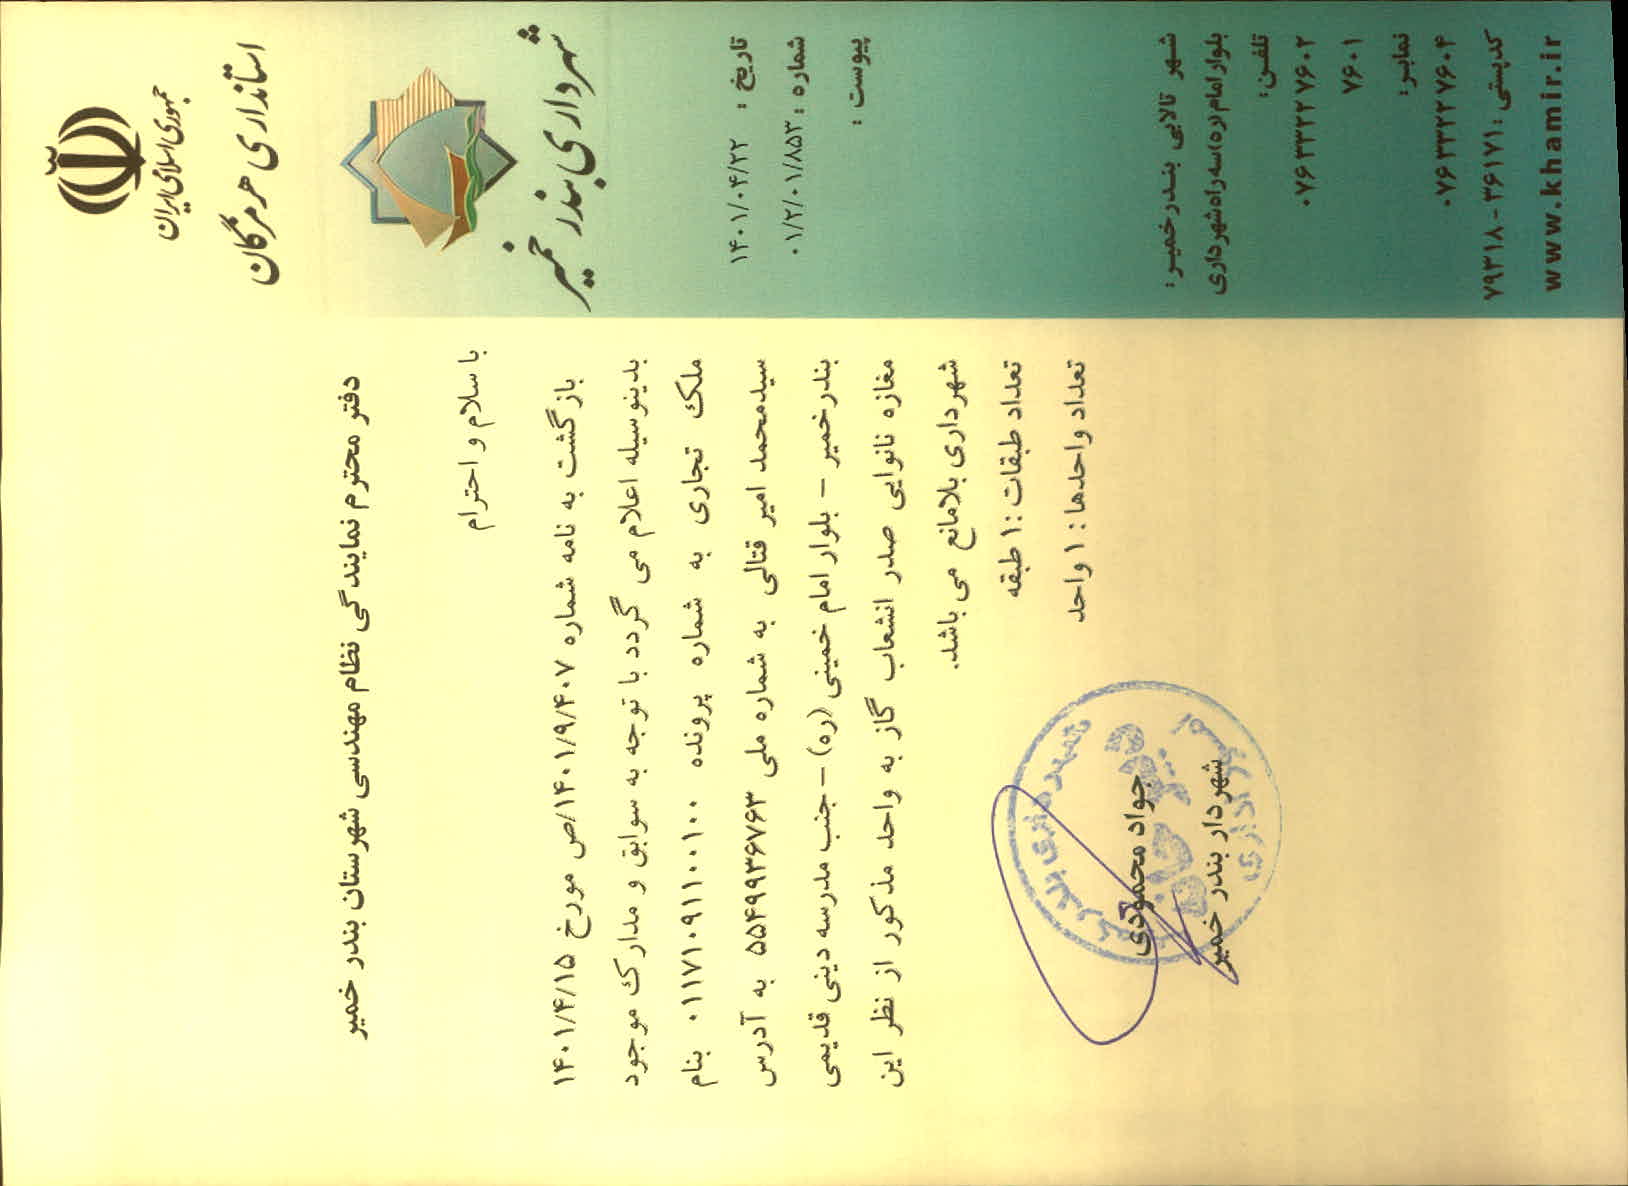 جمهوری اسلامی ایران
استانداری هرمزگان
شهرداری بندر خمیر
تاریخ : ۱۴۰۱/۰۴/۲۲
شماره : ۰۱/۲/۰۱/۸۵۳
پیوست :
دفتر محترم نمایندگی نظام مهندسی شهرستان بندر خمیر
با سلام و احترام
بازگشت به نامه شماره ۱۴۰۱/۹/۴۰۷/ص مورخ ۱۴۰۱/۴/۱۵
بدینوسیله اعلام می گردد با توجه به سوابق و مدارک موجود
ملک تجاری به شماره پرونده ۰۱۱۷۱۰۹۱۱۰۰۱۰۰ بنام
سیدمحمد امیر قتالی به شماره ملی ۵۵۴۹۹۳۶۷۶۳ به آدرس
بندرخمیر – بلوار امام خمینی (ره) – جنب مدرسه دینی قدیمی
مغازه نانوایی صدر انشعاب گاز به واحد مذکور از نظر این
شهرداری بلامانع می باشد.
تعداد طبقات : ۱ طبقه
تعداد واحدها : ۱ واحد
جواد محمودی
شهردار بندر خمیر
شهر تالابی بندرخمیر:
بلوار امام (ره) سه راه شهرداری
تلفن:
۰۷۶۳۳۲۲۷۶۰۲
۷۶۰۱
نمابر:
۰۷۶۳۳۲۲۷۶۰۴
کدپستی : ۳۶۱۷۱-۷۹۳۱۸
www.khamir.ir